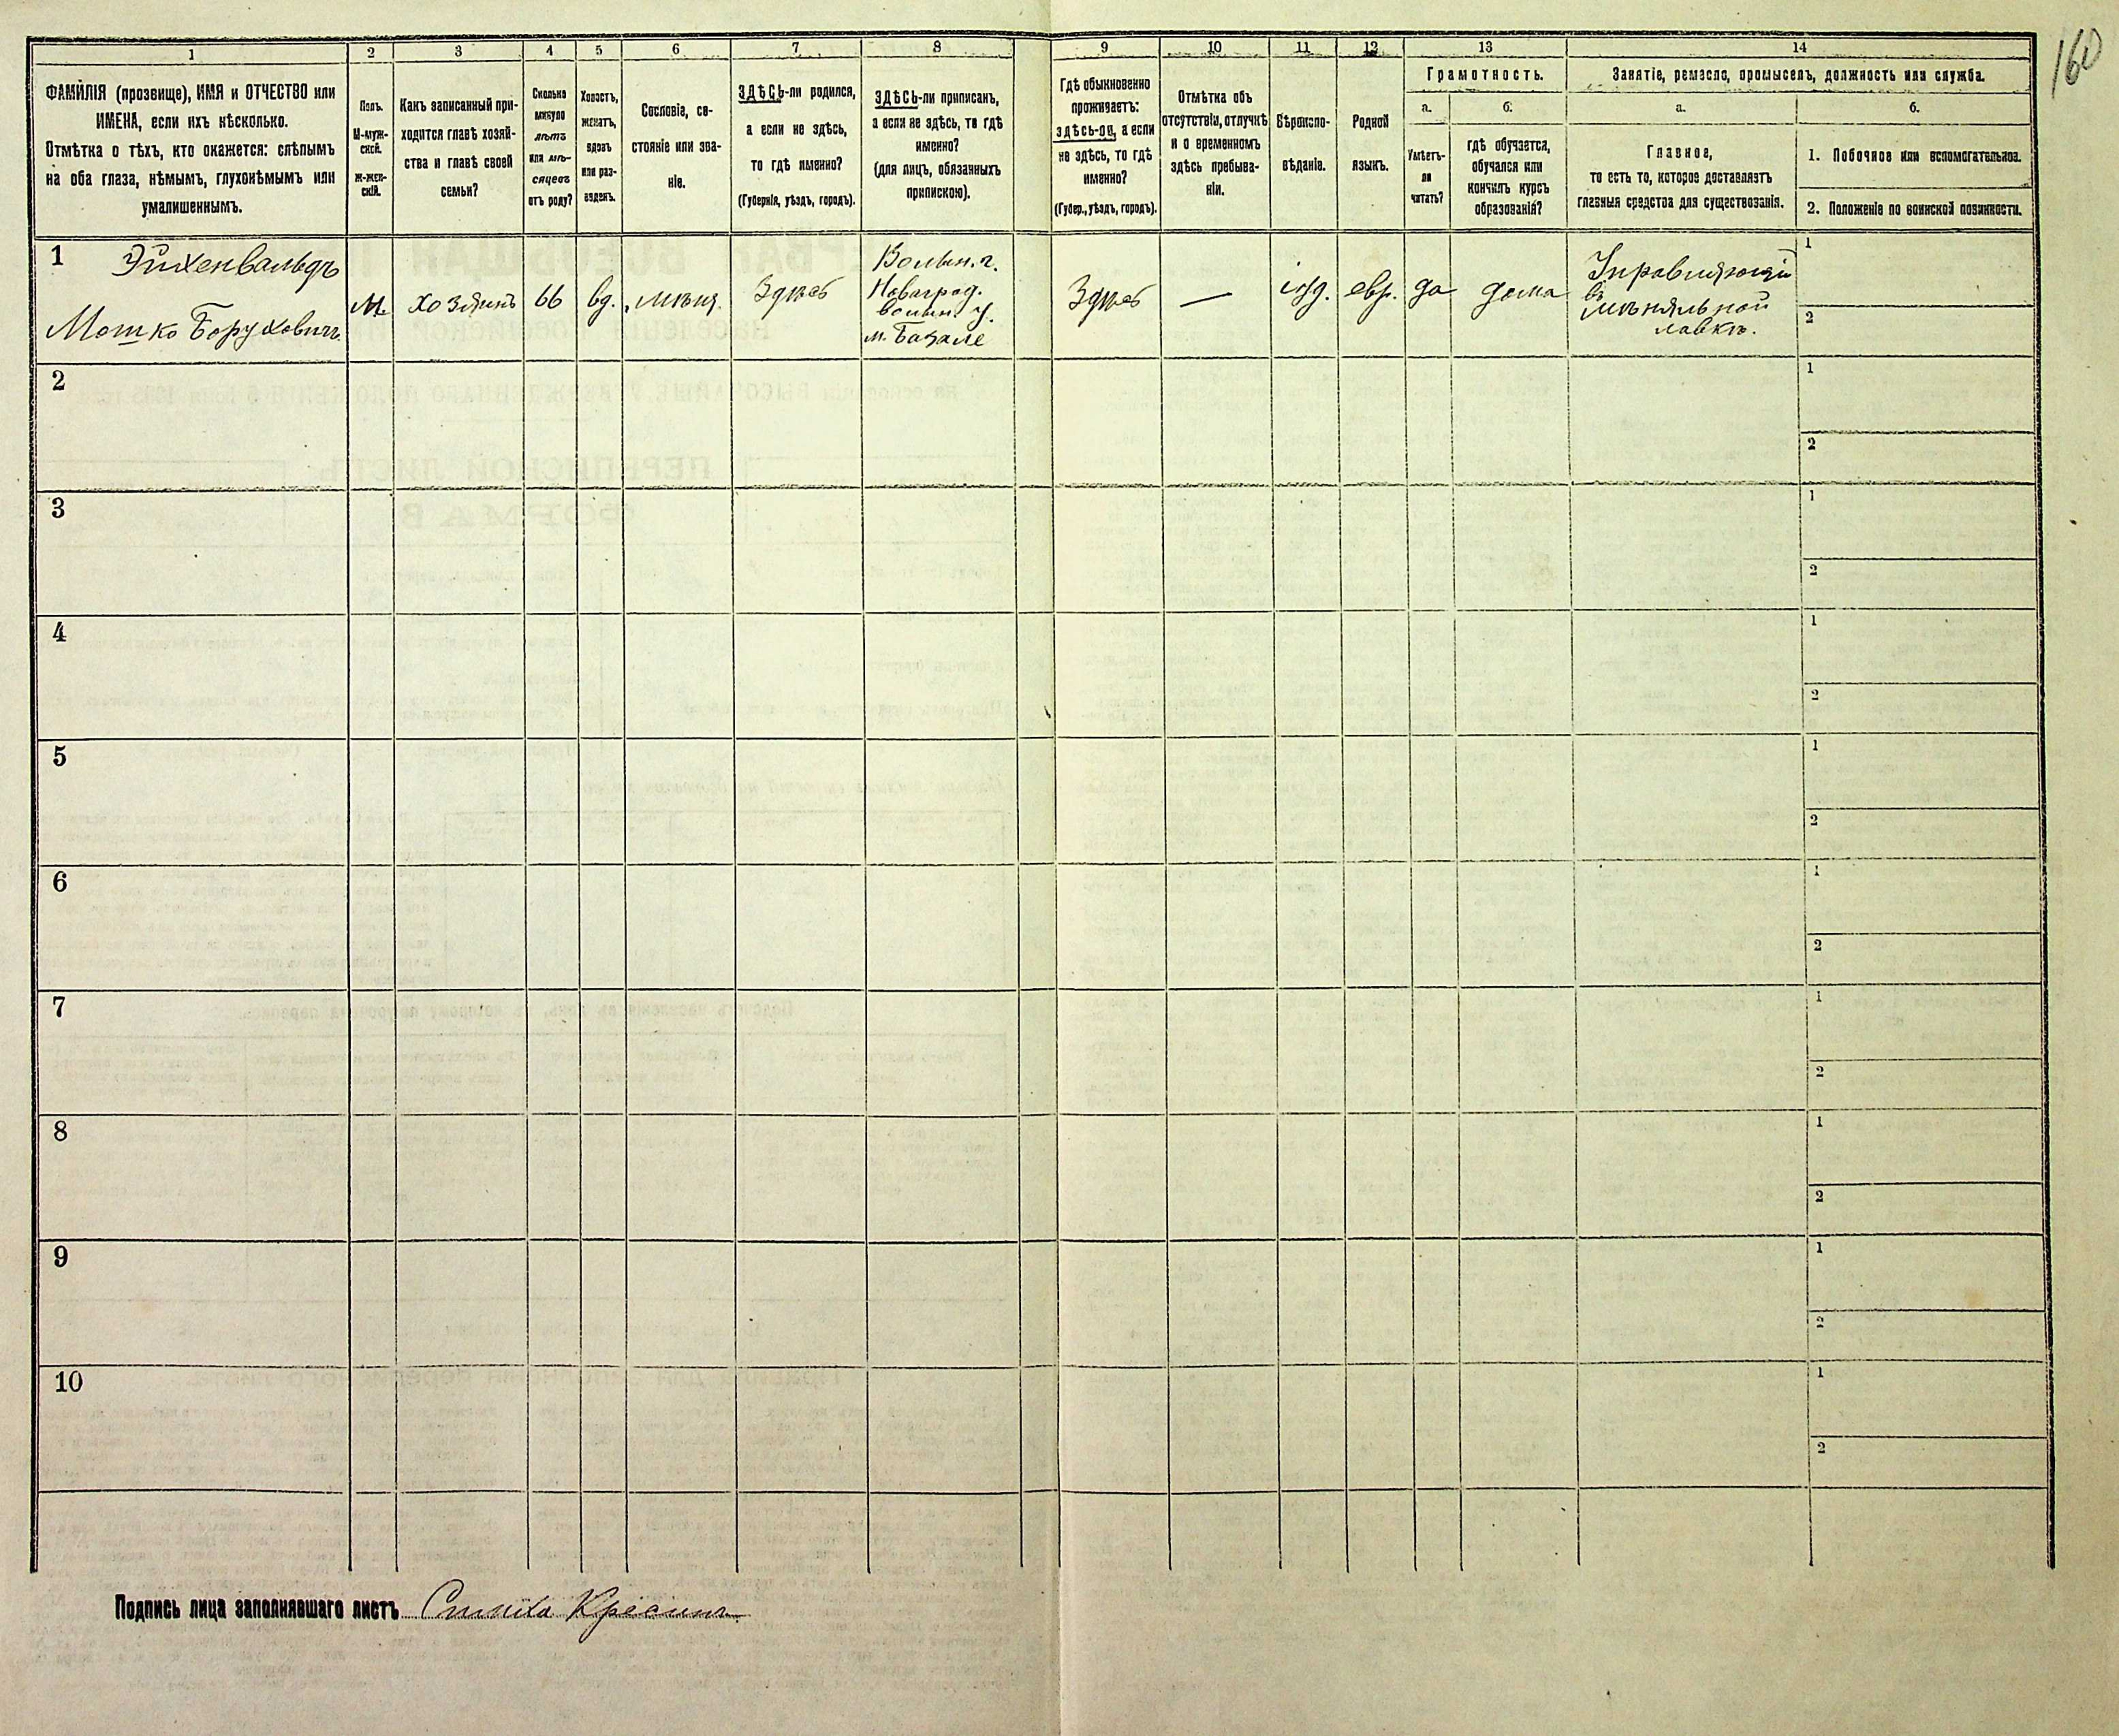 160
1
2
3
4
5
6
7
8
9
10
11
12
13
14
ФАМИЛІЯ (прозвище), ИМЯ и ОТЧЕСТВО или
ИМЕНА, если ихъ нѣсколько.
Отмѣтка о тѣхъ, кто окажется: слѣпымъ
на оба глаза, нѣмымъ, глухонѣмымъ или
умалишеннымъ.
Полъ.
М-муж-
ской.
Ж-жен-
скій.
Какъ записанный при-
ходится главѣ хозяй-
ства и главѣ своей
семьи?
Сколько
минуло
лѣтъ
или мѣ-
сяцевъ
отъ роду?
Холостъ,
женатъ,
вдовъ
или раз-
веденъ.
Сословіе, со-
стояніе или зва-
ніе.
ЗДѢСЬ-ли родился,
а если не здѣсь,
то гдѣ именно?
(Губернія, уѣздъ, городъ).
ЗДѢСЬ-ли приписанъ,
а если не здѣсь, то гдѣ
именно?
(для лицъ, обязанныхъ
припискою).
Гдѣ обыкновенно
проживаетъ:
здѣсь-ли, а если
не здѣсь, то гдѣ
именно?
(Губер., уѣздъ, городъ).
Отмѣтка объ
отсутствіи, отлучкѣ
и о временномъ
здѣсь пребыва-
ніи.
Вѣроиспо-
вѣданіе.
Родной
языкъ.
Грамотность.
а.
б.
Умѣетъ-
ли
читать?
гдѣ обучается,
обучался или
кончилъ курсъ
образованія?
Занятіе, ремесло, промыселъ, должность или служба.
а.
б.
Главное,
то есть то, которое доставляетъ
главныя средства для существованія.
1. Побочное или вспомогательное.
2. Положеніе по воинской повинности.
1 Эйхенвальдъ
Мошко Боруховичъ
М.
хозяинъ
66
вд.
мѣщ.
Здѣсь
Волын. г.
Новоград.
волын. у.
м. Базале
Здѣсь
—
іуд.
евр.
да
дома
Управляющій
въ
мѣняльной
лавкѣ.
1
2
2
1
2
3
1
2
4
1
2
5
1
2
6
1
2
7
1
2
8
1
2
9
1
2
10
1
2
Подпись лица заполнявшаго листъ